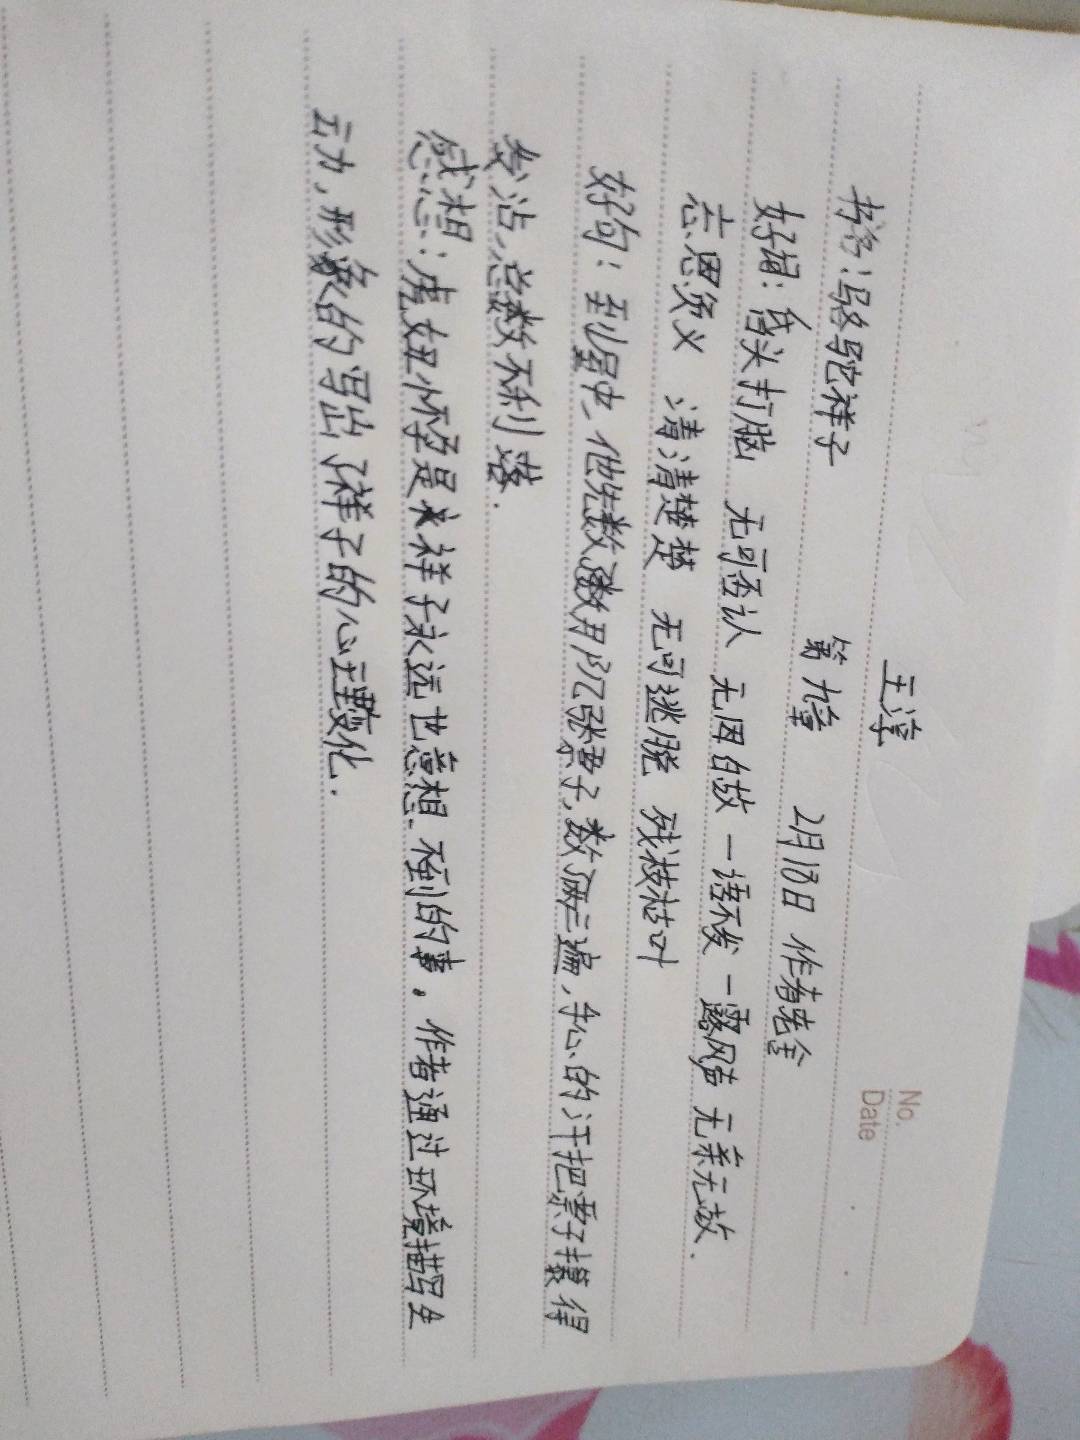 No.
Date
王淳
书名:骆驼祥子 第九章 2月18日 作者老舍
好词:昏头打脑 无可否认 无因白故 一语不发 一露风声 无亲无故.
忘恩负义 清清楚楚 无可逃脱 残枝枯叶
好句:到屋中,他先数数那几张票子,数了两三遍,手心的汗把票子攥得
发沾,总数不利落.
感想:虎妞怀孕是祥子永远也意想不到的事。作者通过环境描写生
动,形象的写出了祥子的心理变化.